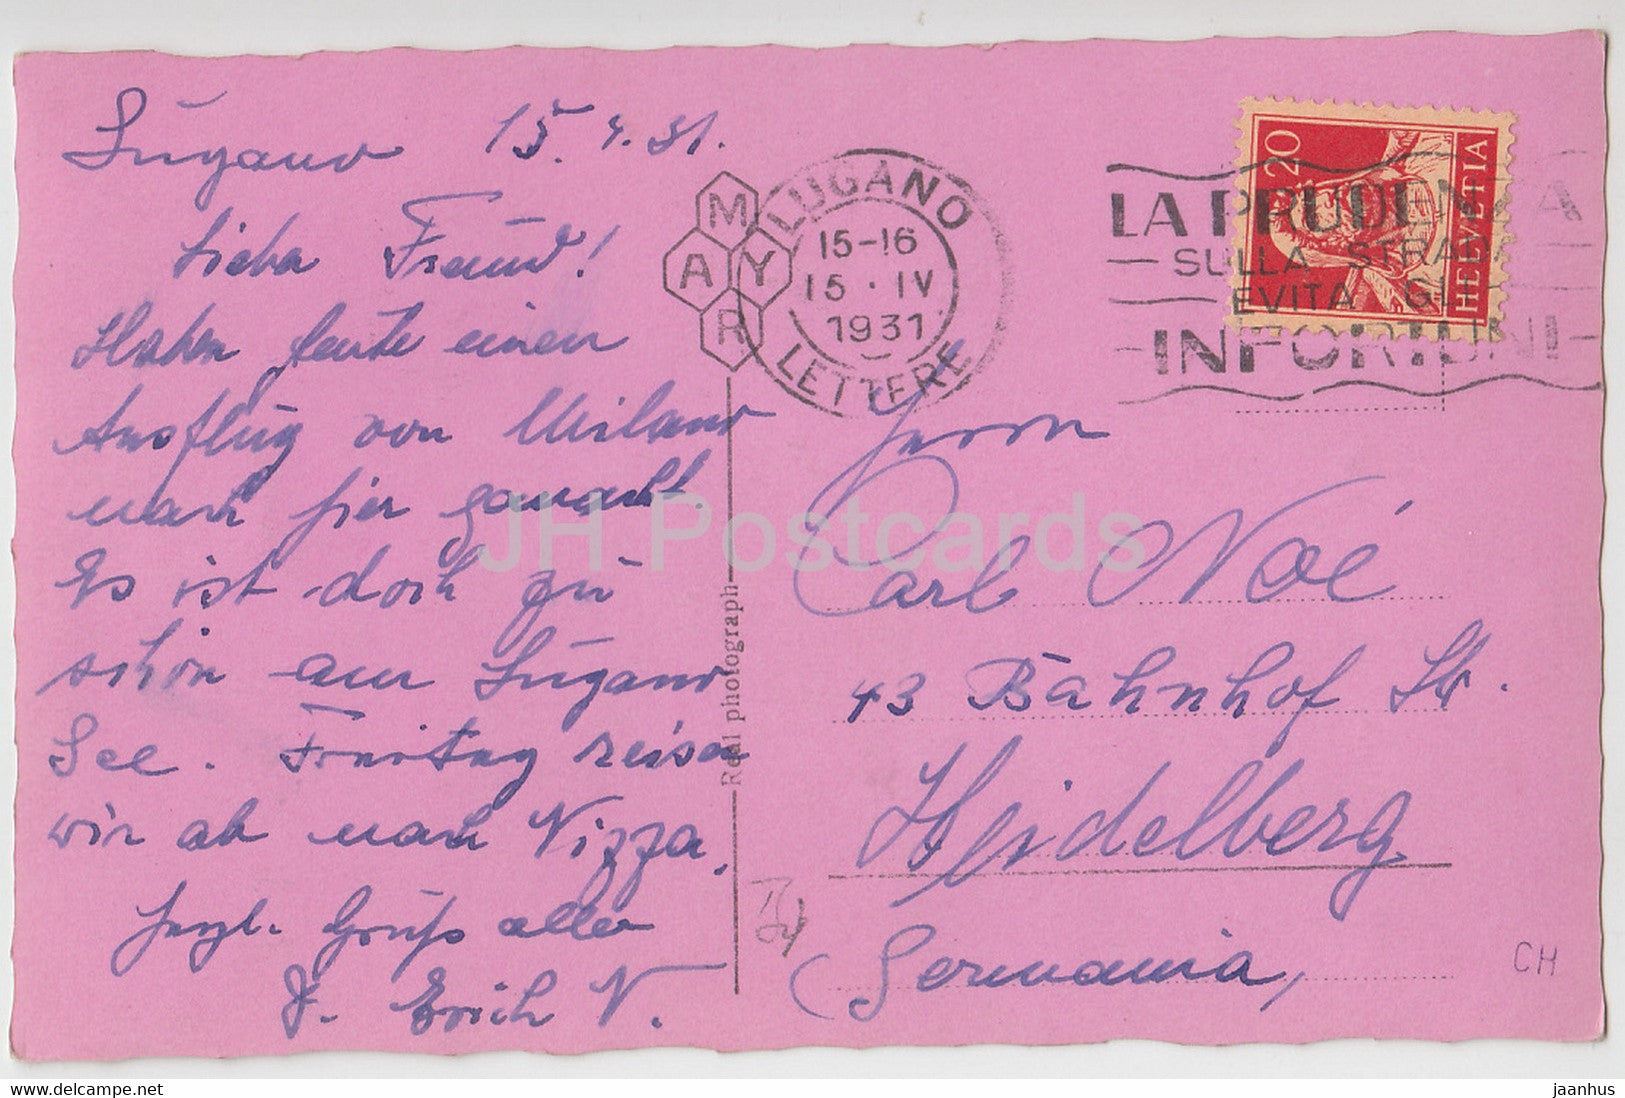 Lugano 15.4.31.
Liebe Freund!
Haben heute einen
Ausflug von Milano
nach hier gemacht.
Es ist doch zu
schön am Lugano
See. Freitag reisen
wir ab nach Nizza.
Herzl. Gruß aller
J. Erich N.
MAYR
LUGANO
15-16
15·IV
1931
LETTERE
LA PRUDENZA
SULLA STRADA
EVITA GLI
INFORTUNI
20
HELVETIA
Real photograph
Herrn
Carl Noé
43 Bahnhof St.
Heidelberg
Germania,
CH
JH Postcards
www.delcampe.net
jaanhus